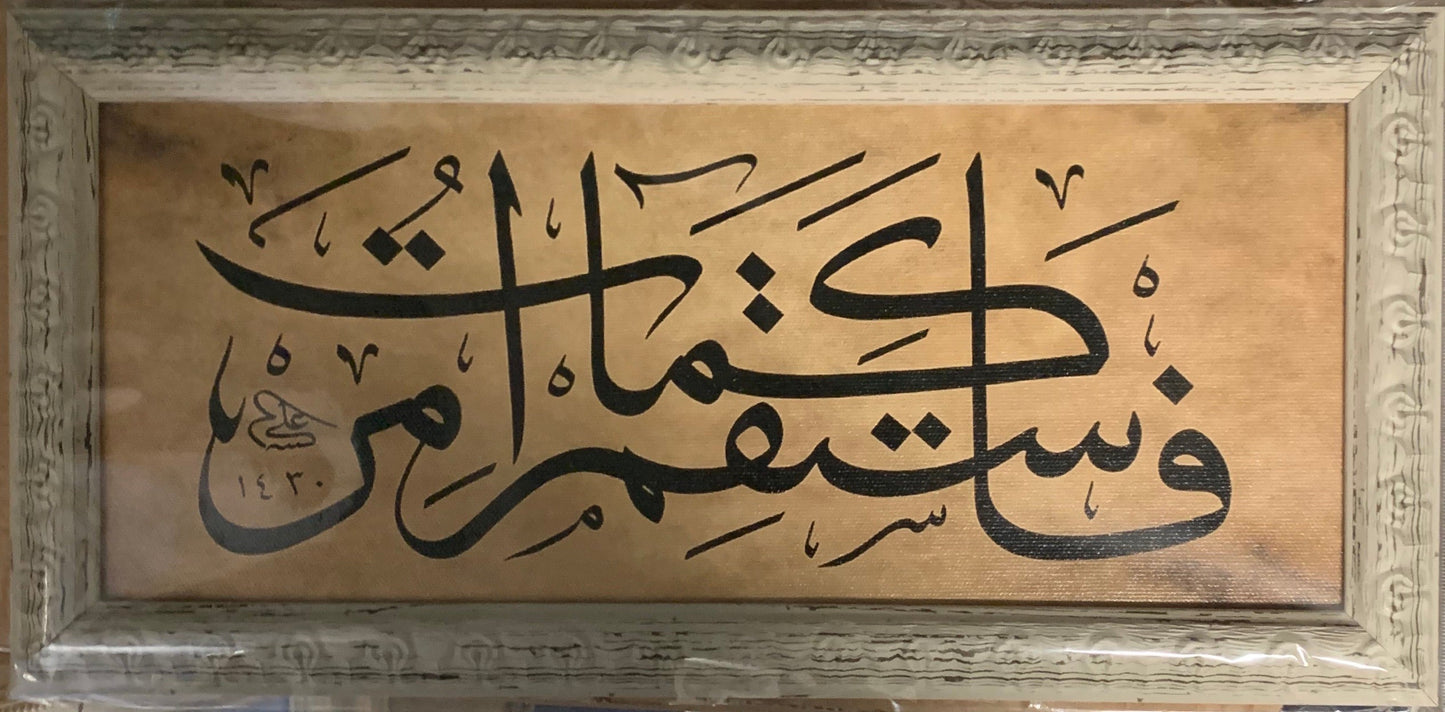 فَاسْتَقِمْ كَمَآ أُمِرْتَ
علي
١٤٣٠